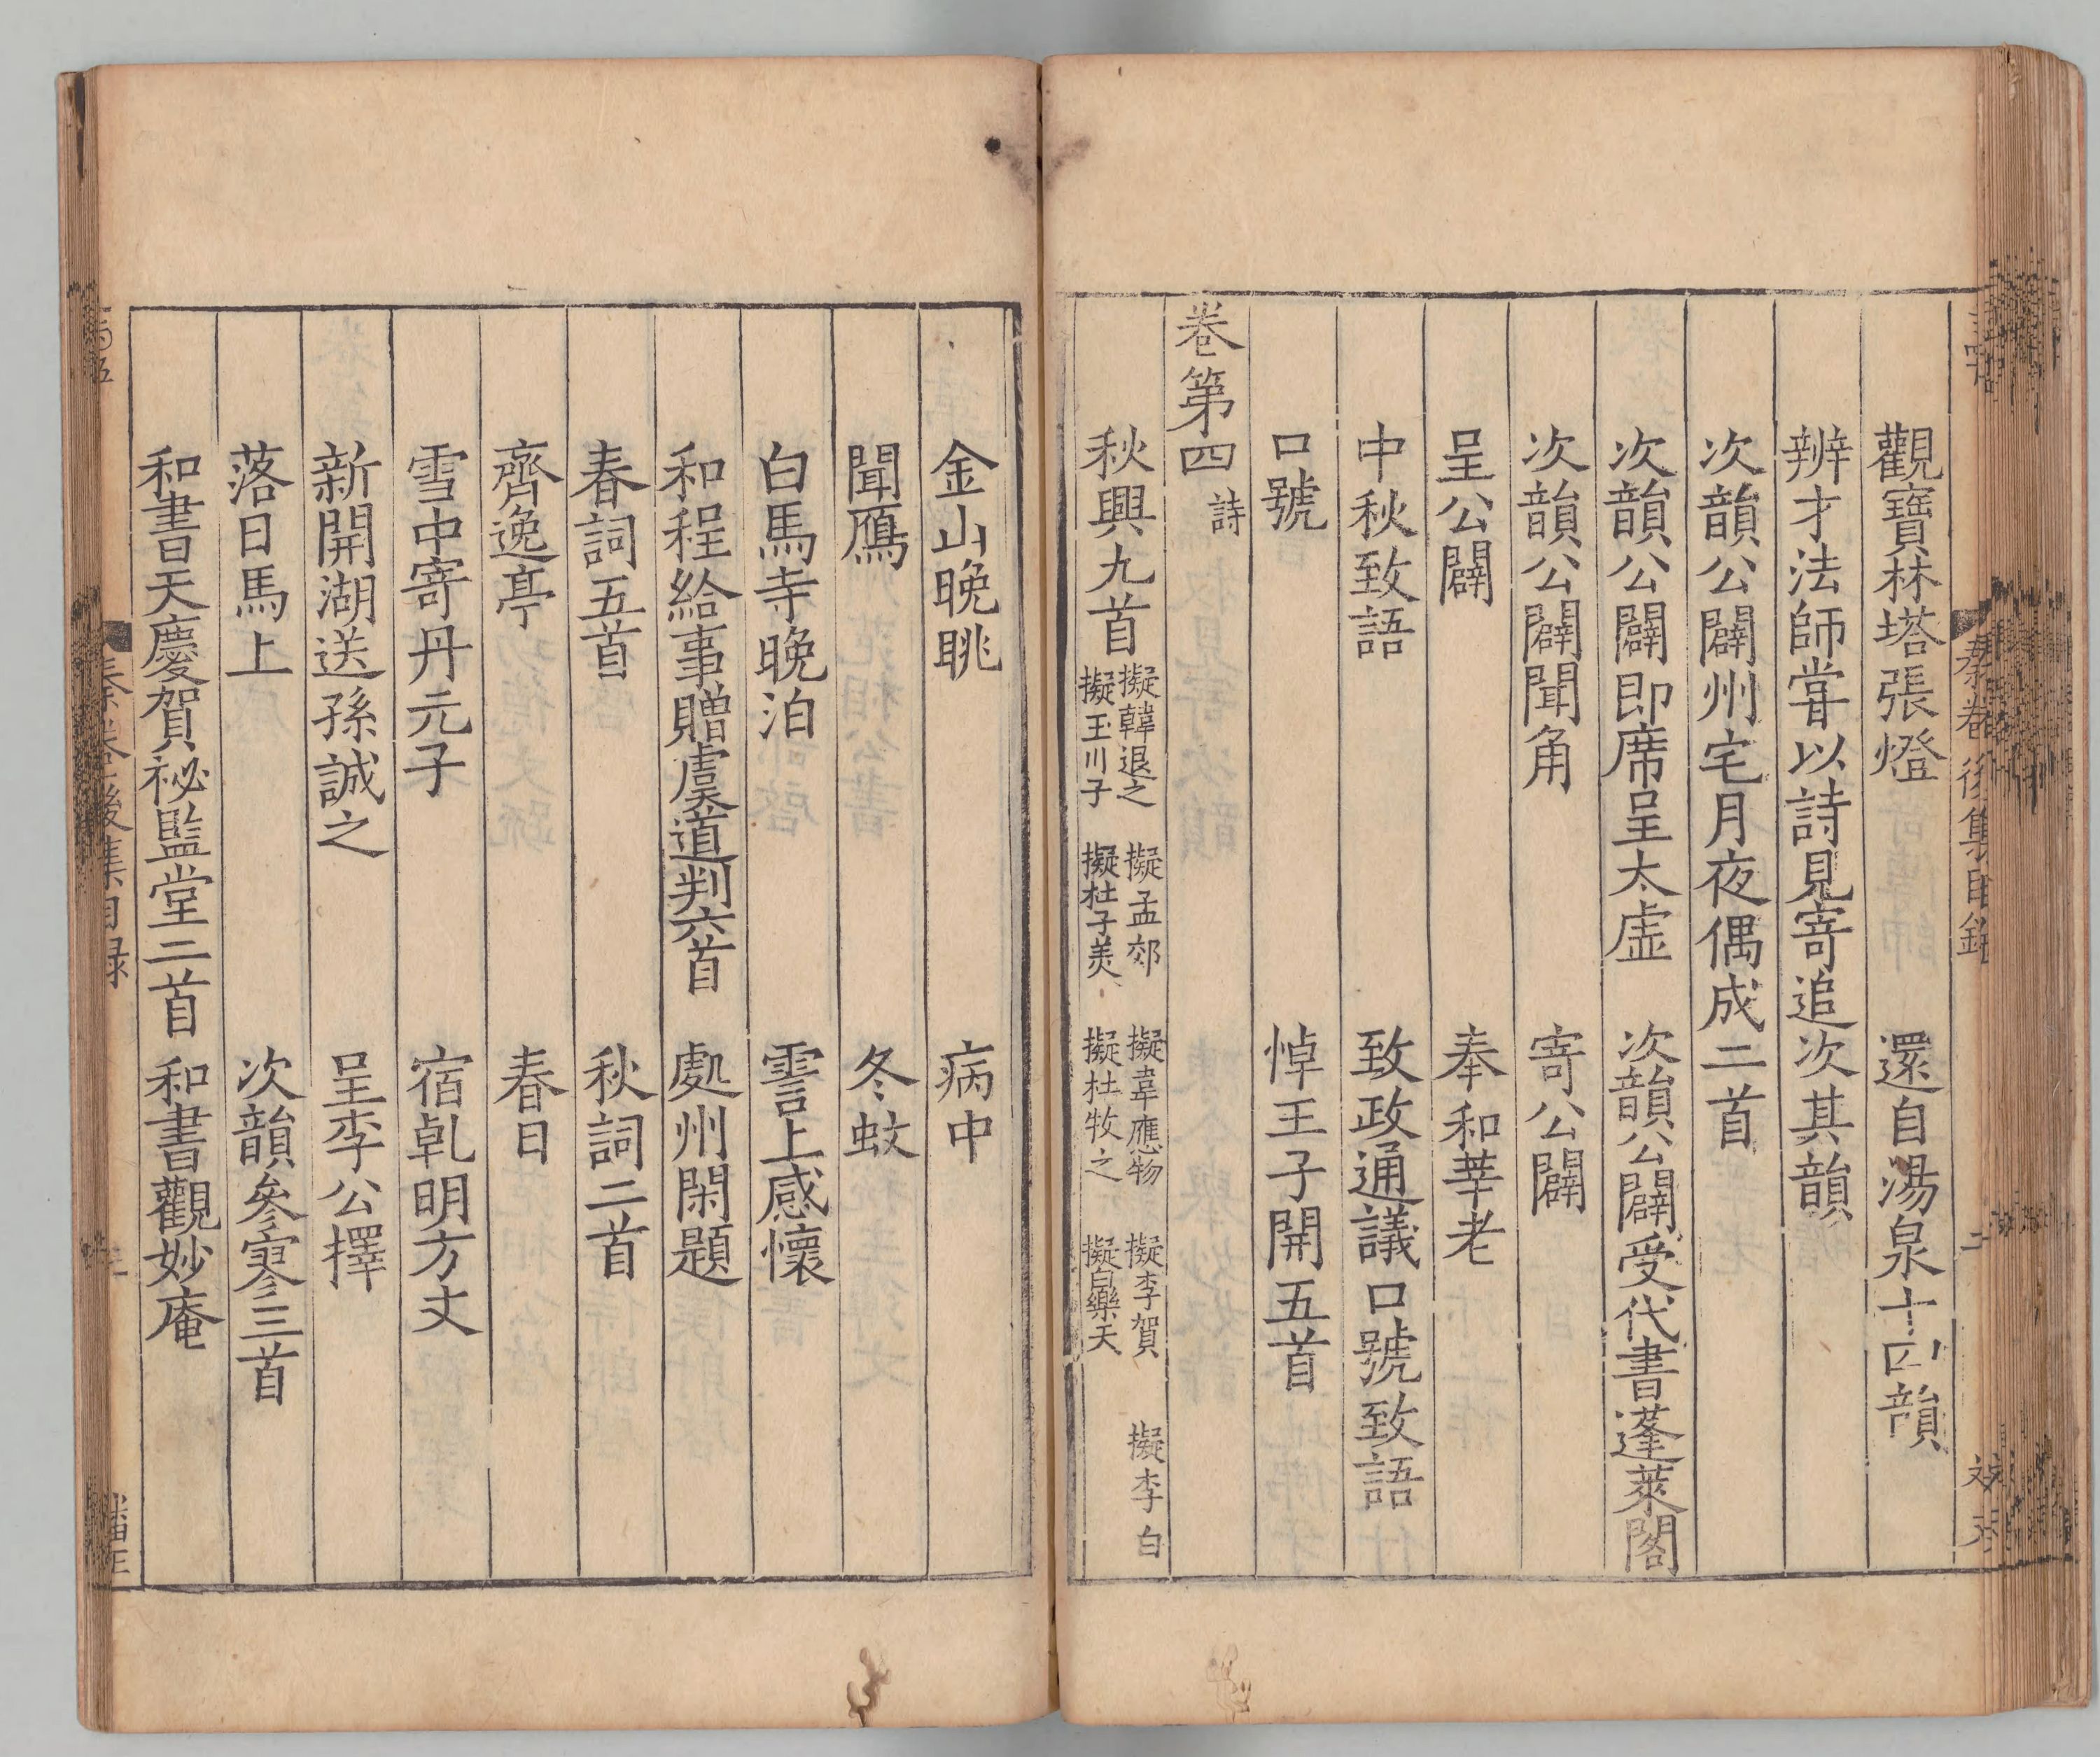 觀寶林塔張燈　還自湯泉十四韻
辨才法師甞以詩見寄追次其韻
次韻公闢州宅月夜偶成二首
次韻公闢即席呈太虛　次韻公闢受代書蓬萊閣
次韻公闢聞角　寄公闢
呈公闢　奉和莘老
中秋致語　致政通議口號致語
口號　悼王子開五首
卷第四 詩
秋興九首 擬韓退之 擬玉川子 擬孟郊 擬杜子美 擬韋應物 擬杜牧之 擬李賀 擬白樂天 擬李白
金山晚眺　病中
聞鴈　冬蚊
白馬寺晚泊　霅上感懷
和程給事贈虞道判六首　處州閑題
春詞五首　秋詞二首
齊逸亭　春日
雪中寄丹元子　宿乹明方丈
新開湖送孫誠之　呈李公擇
落日馬上　次韻參寥三首
和書天慶賀祕監堂二首　和書觀妙庵
秦卷後集目録